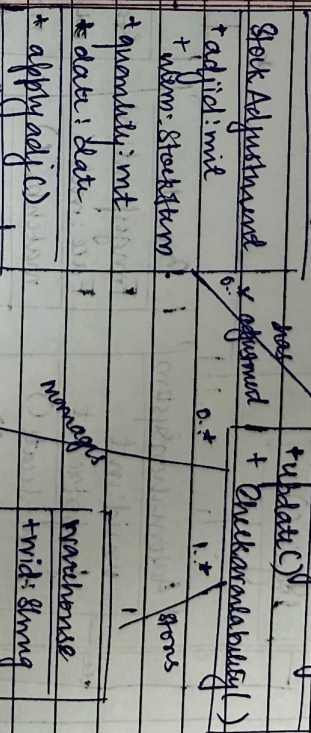 Stock Adjustment
+ adjid: int
+ item: StockItem
+ quantity: int
* date: date
* applyadj()
has
0..* adjusted
+ update()
+ Checkavailability()
0..*
1..*
manages
stores
1
warehouse
+ wid: String